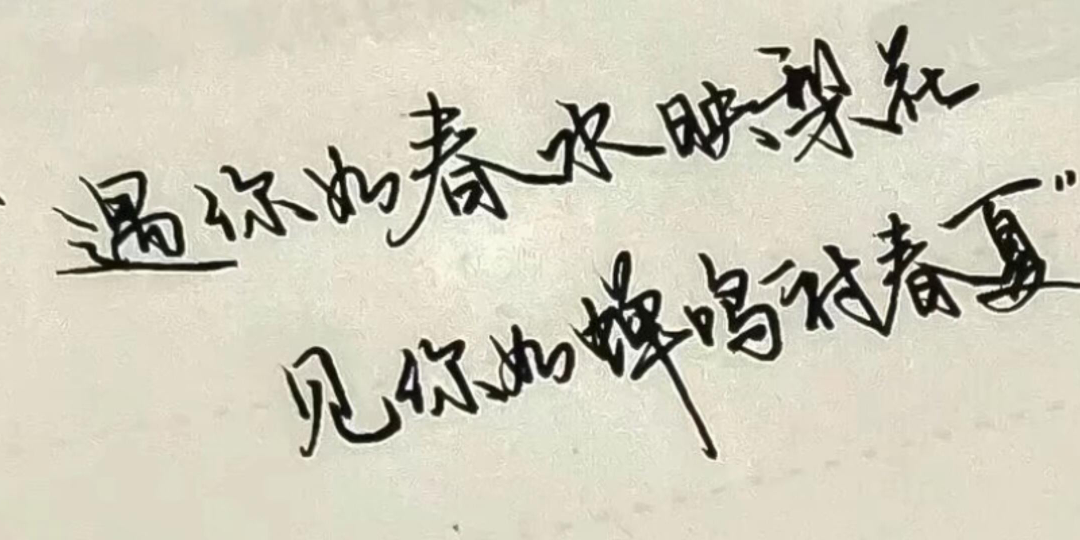 遇你如春水映梨花
见你如蝉鸣衬春夏”